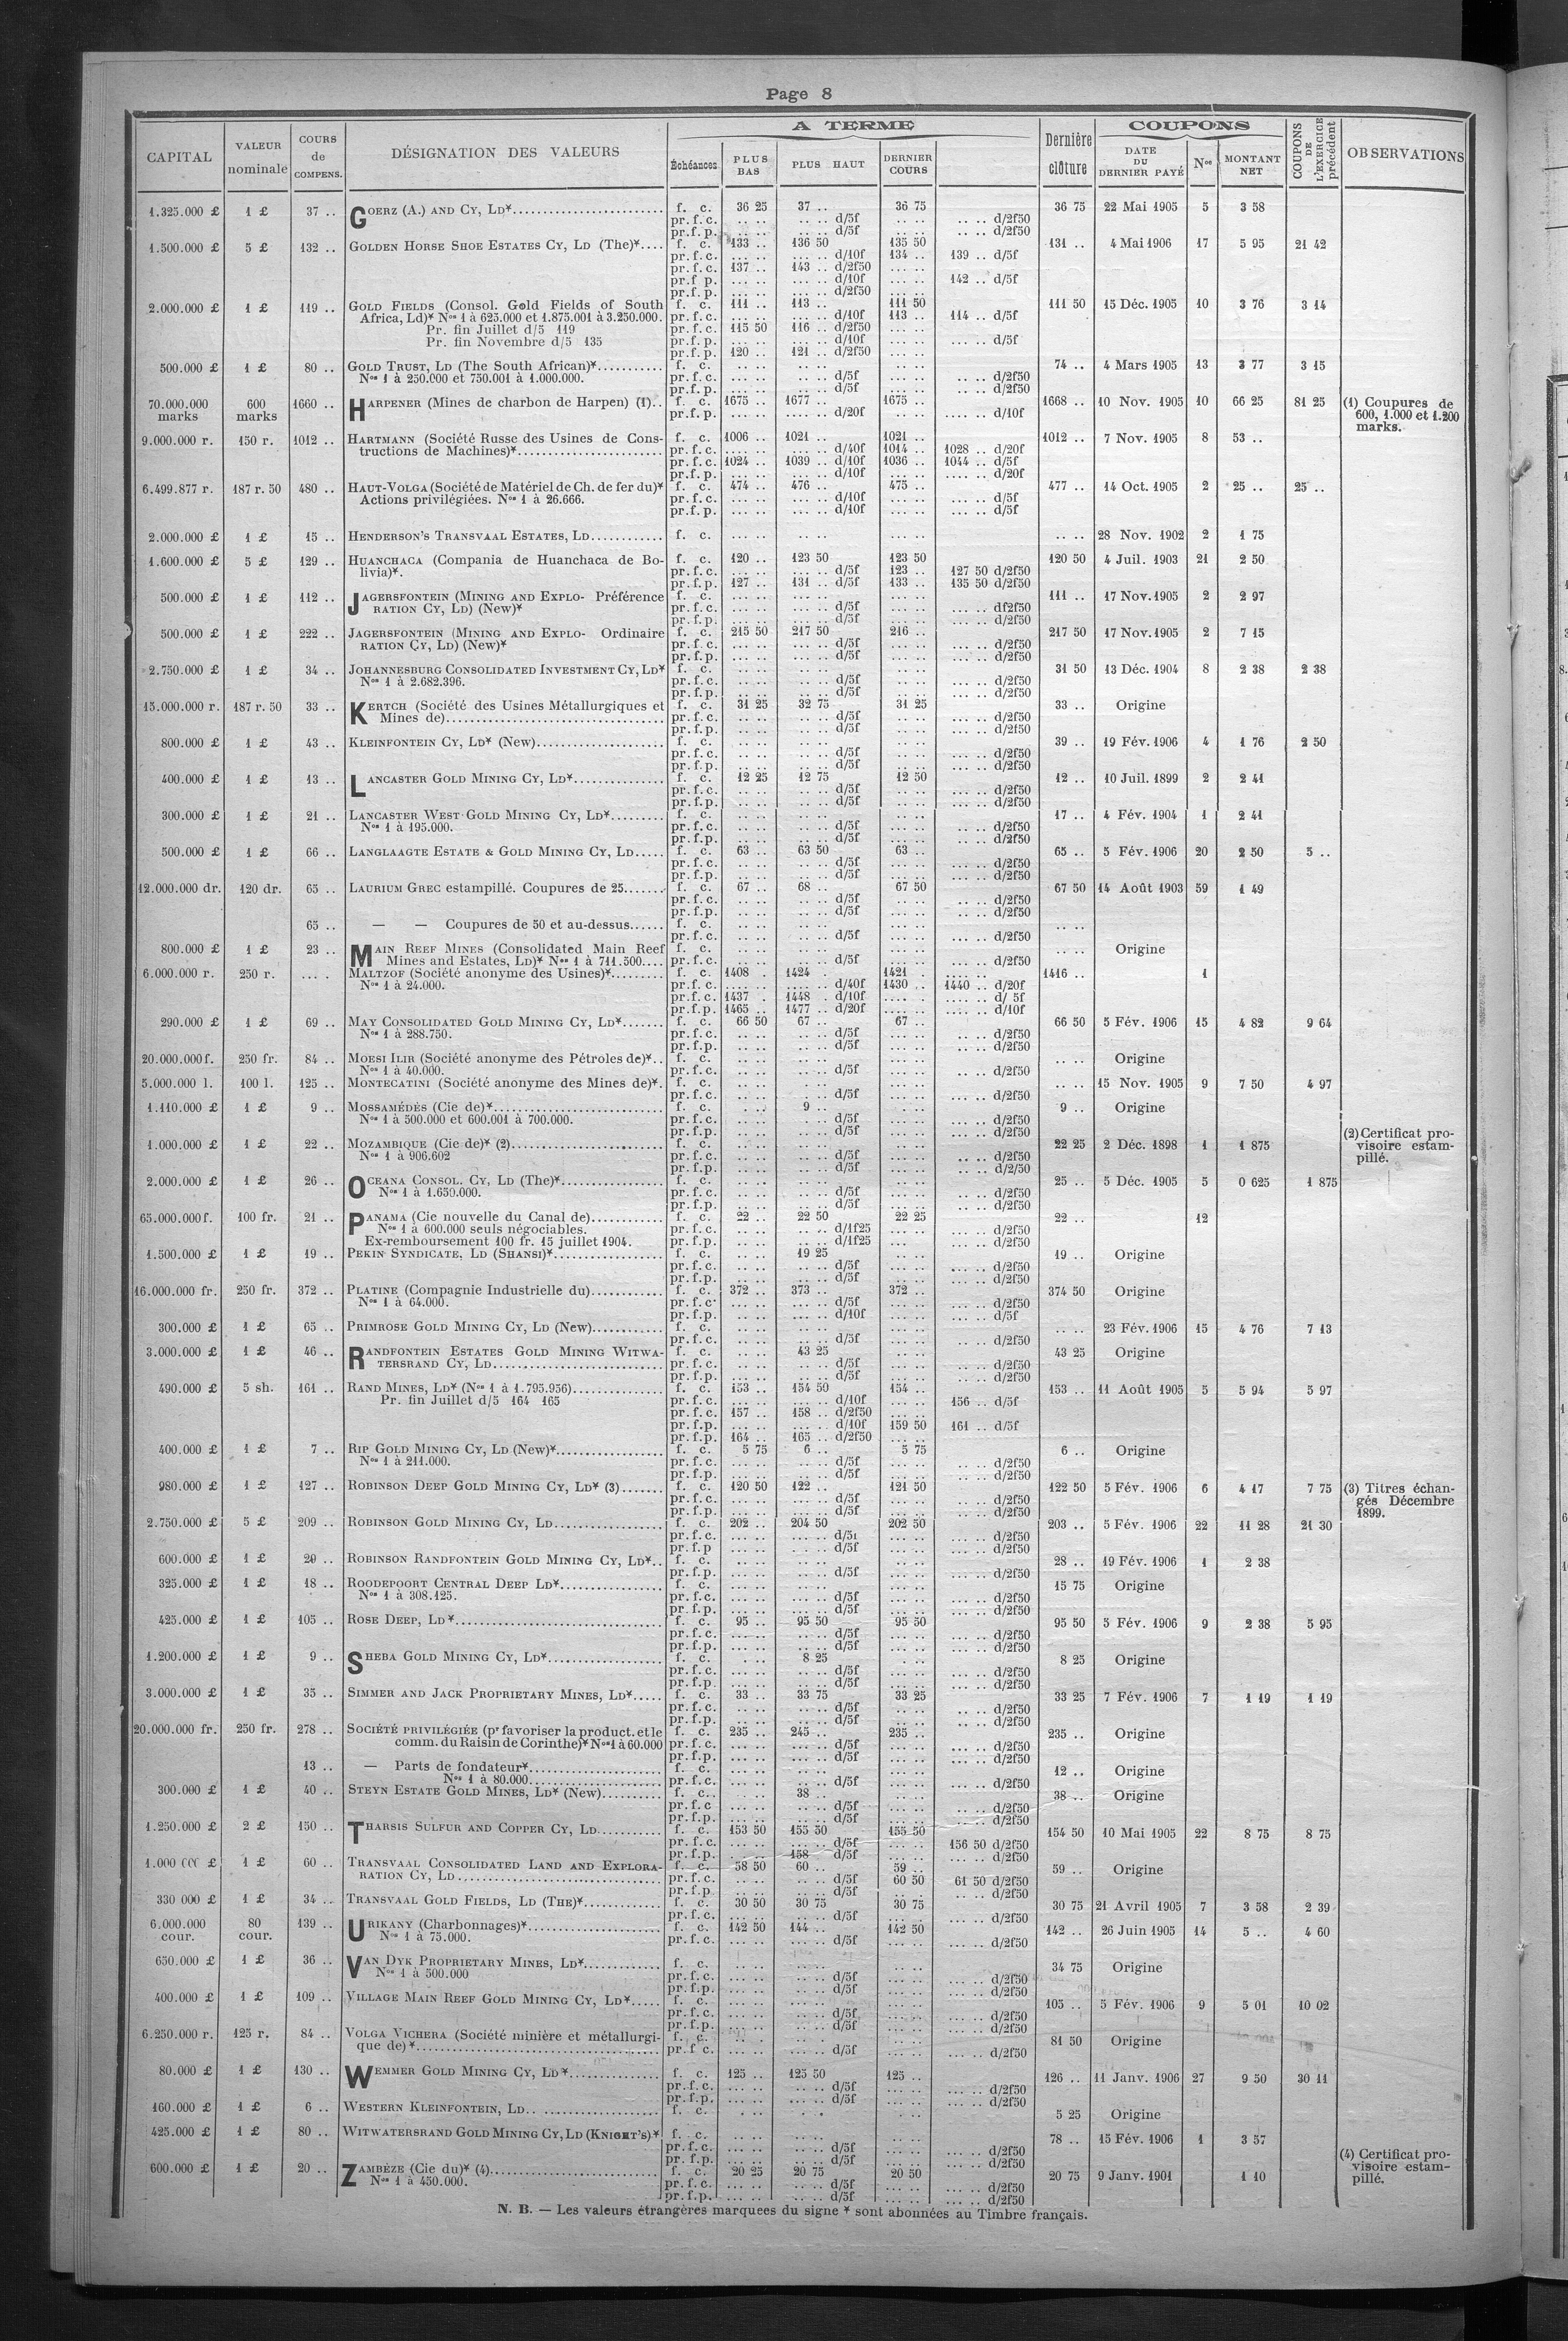 Page 8
CAPITAL | VALEUR nominale | COURS de COMPENS. | DÉSIGNATION DES VALEURS | A TERME | Échéances | PLUS BAS | PLUS HAUT | DERNIER COURS | Dernière clôture | COUPONS | DATE DU DERNIER PAYÉ | Nos | MONTANT NET | COUPONS DE L'EXERCICE précédent | OBSERVATIONS
1.325.000 £ 1 £ 37 .. GOERZ (A.) AND CY, LD* f. c. 36 25 37 .. 36 75 36 75 22 Mai 1905 5 3 58
pr. f. c. .. .. .. .. d/5f .. .. .. .. d/2f50
pr. f. p. .. .. .. .. d/5f .. .. .. .. d/2f50
1.500.000 £ 5 £ 132 .. GOLDEN HORSE SHOE ESTATES CY, LD (The)* f. c. 133 .. 136 50 135 50 131 .. 4 Mai 1906 17 5 95 21 42
pr. f. c. ... .. ... .. d/10f 134 .. 139 .. d/5f
pr. f. c. 137 .. 143 .. d/2f50 ... ..
pr. f. p. ... .. ... .. d/10f ... .. 142 .. d/5f
pr. f. p. ... .. ... .. d/2f50 ... ..
2.000.000 £ 1 £ 119 .. GOLD FIELDS (Consol. Gold Fields of South f. c. 111 .. 113 .. 111 50 111 50 15 Déc. 1905 10 3 76 3 14
Africa, Ld)* Nos 1 à 625.000 et 1.875.001 à 3.250.000. pr. f. c. ... .. ... .. d/10f 113 .. 114 .. d/5f
Pr. fin Juillet d/5 119 pr. f. c. 115 50 116 .. d/2f50 ... ..
Pr. fin Novembre d/5 135 pr. f. p. ... .. ... .. d/10f ... .. ... .. d/5f
pr. f. p. 120 .. 121 .. d/2f50 ... ..
500.000 £ 1 £ 80 .. GOLD TRUST, LD (The South African)* f. c. .. .. .. .. .. .. 74 .. 4 Mars 1905 13 3 77 3 15
Nos 1 à 250.000 et 750.001 à 1.000.000. pr. f. c. ... .. ... .. d/5f ... .. .. .. d/2f50
pr. f. p. ... .. ... .. d/5f ... .. .. .. d/2f50
70.000.000 marks 600 marks 1660 .. HARPENER (Mines de charbon de Harpen) (1).. f. c. 1675 .. 1677 .. 1675 .. 1668 .. 10 Nov. 1905 10 66 25 81 25 (1) Coupures de 600, 1.000 et 1.200 marks.
pr. f. p. ... .. .... .. d/20f ... .. .... .. d/10f
9.000.000 r. 150 r. 1012 .. HARTMANN (Société Russe des Usines de Cons- f. c. 1006 .. 1021 .. 1021 .. 1012 .. 7 Nov. 1905 8 53 ..
tructions de Machines)* pr. f. c. .... .. .... .. d/40f 1014 .. 1028 .. d/20f
pr. f. c. 1024 .. 1039 .. d/10f 1036 .. 1044 .. d/5f
pr. f. p. .... .. .... .. d/10f .... .. .... .. d/20f
6.499.877 r. 187 r. 50 480 .. HAUT-VOLGA (Société de Matériel de Ch. de fer du)* f. c. 474 .. 476 .. 475 .. 477 .. 14 Oct. 1905 2 25 .. 25 ..
Actions privilégiées. Nos 1 à 26.666. pr. f. c. ... .. ... .. d/10f ... .. ... .. d/5f
pr. f. p. ... .. ... .. d/10f ... .. ... .. d/5f
2.000.000 £ 1 £ 15 .. HENDERSON'S TRANSVAAL ESTATES, LD f. c. ... .. .. .. ... .. .. .. 28 Nov. 1902 2 1 75
1.600.000 £ 5 £ 129 .. HUANCHACA (Compania de Huanchaca de Bo- f. c. 120 .. 123 50 123 50 120 50 4 Juil. 1903 21 2 50
livia)*. pr. f. c. ... .. ... .. d/5f 123 .. 127 50 d/2f50
pr. f. p. 127 .. 131 .. d/5f 133 .. 135 50 d/2f50
500.000 £ 1 £ 112 .. JAGERSFONTEIN (MINING AND EXPLO- Préférence f. c. ... .. ... .. ... .. 111 .. 17 Nov. 1905 2 2 97
RATION CY, LD) (New)* pr. f. c. ... .. ... .. d/5f ... .. ... .. df2f50
pr. f. p. ... .. ... .. d/5f ... .. ... .. d/2f50
500.000 £ 1 £ 222 .. JAGERSFONTEIN (MINING AND EXPLO- Ordinaire f. c. 215 50 217 50 216 .. 217 50 17 Nov. 1905 2 7 15
RATION CY, LD) (New)* pr. f. c. ... .. ... .. d/5f ... .. ... .. d/2f50
pr. f. p. ... .. ... .. d/5f ... .. ... .. d/2f50
2.750.000 £ 1 £ 34 .. JOHANNESBURG CONSOLIDATED INVESTMENT CY, LD* f. c. .. .. .. .. .. .. 31 50 13 Déc. 1904 8 2 38 2 38
Nos 1 à 2.682.396. pr. f. c. .. .. .. .. d/5f .. .. ... .. d/2f50
pr. f. p. .. .. .. .. d/5f .. .. ... .. d/2f50
15.000.000 r. 187 r. 50 33 .. KERTCH (Société des Usines Métallurgiques et f. c. 31 25 32 75 31 25 33 .. Origine
Mines de) pr. f. c. .. .. .. .. d/5f .. .. ... .. d/2f50
pr. f. p. .. .. .. .. d/5f .. .. ... .. d/2f50
800.000 £ 1 £ 43 .. KLEINFONTEIN CY, LD* (New) f. c. .. .. .. .. .. .. 39 .. 19 Fév. 1906 4 1 76 2 50
pr. f. c. .. .. .. .. d/5f .. .. ... .. d/2f50
pr. f. p. .. .. .. .. d/5f .. .. ... .. d/2f50
400.000 £ 1 £ 13 .. LANCASTER GOLD MINING CY, LD* f. c. 12 25 12 75 12 50 12 .. 10 Juil. 1899 2 2 41
pr. f. c. .. .. .. .. d/5f ... .. ... .. d/2f50
pr. f. p. .. .. .. .. d/5f ... .. ... .. d/2f50
300.000 £ 1 £ 21 .. LANCASTER WEST GOLD MINING CY, LD* f. c. .. .. .. .. ... .. 17 .. 4 Fév. 1904 1 2 41
Nos 1 à 195.000. pr. f. c. .. .. .. .. d/5f ... .. .. .. d/2f50
pr. f. p. .. .. .. .. d/5f ... .. .. .. d/2f50
500.000 £ 1 £ 66 .. LANGLAAGTE ESTATE & GOLD MINING CY, LD f. c. 63 .. 63 50 63 .. 65 .. 5 Fév. 1906 20 2 50 5 ..
pr. f. c. .. .. .. .. d/5f .. .. ... .. d/2f50
pr. f. p. .. .. .. .. d/5f .. .. ... .. d/2f50
12.000.000 dr. 120 dr. 65 .. LAURIUM GREC estampillé. Coupures de 25 f. c. 67 .. 68 .. 67 50 67 50 14 Août 1903 59 1 49
pr. f. c. .. .. .. .. d/5f .. .. ... .. d/2f50
pr. f. p. .. .. .. .. d/5f .. .. ... .. d/2f50
65 .. — — Coupures de 50 et au-dessus f. c. .. .. .. .. .. .. .. ..
pr. f. c. .. .. .. .. d/5f .. .. ... .. d/2f50
800.000 £ 1 £ 23 .. MAIN REEF MINES (Consolidated Main Reef f. c. .. .. .. .. .. .. .. .. Origine
Mines and Estates, LD)* Nos 1 à 711.500 pr. f. c. .. .. .. .. d/5f .. .. ... .. d/2f50
6.000.000 r. 250 r. ... . MALTZOF (Société anonyme des Usines)* f. c. 1408 . 1424 . 1421 . 1416 .. 1
Nos 1 à 24.000. pr. f. c. .... .. .... .. d/40f 1430 .. 1440 .. d/20f
pr. f. c. 1437 . 1448 . d/10f .... . .... .. d/ 5f
pr. f. p. 1465 .. 1477 .. d/20f .... .. .... .. d/10f
290.000 £ 1 £ 69 .. MAY CONSOLIDATED GOLD MINING CY, LD* f. c. 66 50 67 .. 67 .. 66 50 5 Fév. 1906 15 4 82 9 64
Nos 1 à 288.750. pr. f. c. .. .. .. .. d/5f .. .. ... .. d/2f50
pr. f. p. .. .. .. .. d/5f .. .. ... .. d/2f50
20.000.000 f. 250 fr. 84 .. MOESI ILIR (Société anonyme des Pétroles de)*.. f. c. .. .. .. .. .. .. .. .. Origine
Nos 1 à 40.000. pr. f. c. .. .. .. .. d/5f .. .. ... .. d/2f50
5.000.000 l. 100 l. 125 .. MONTECATINI (Société anonyme des Mines de)*. f. c. .. .. .. .. .. .. .. .. 15 Nov. 1905 9 7 50 4 97
pr. f. c. .. .. . .. d/5f .. .. ... .. d/2f50
1.110.000 £ 1 £ 9 .. MOSSAMÉDÈS (Cie de)* f. c. . .. 9 .. . .. 9 .. Origine
Nos 1 à 500.000 et 600.001 à 700.000. pr. f. c. .. .. .. .. d/5f .. .. ... .. d/2f50
pr. f. p. .. .. .. .. d/5f .. .. ... .. d/2f50
1.000.000 £ 1 £ 22 .. MOZAMBIQUE (Cie de)* (2) f. c. .. .. .. .. .. .. 22 25 2 Déc. 1898 1 1 875 (2) Certificat pro- visoire estam- pillé.
Nos 1 à 906.602 pr. f. c. .. .. .. .. d/5f .. .. .. .. d/2f50
pr. f. p. .. .. .. .. d/5f .. .. .. .. d/2/50
2.000.000 £ 1 £ 26 .. OCEANA CONSOL. CY, LD (The)* f. c. .. .. .. .. .. .. 25 .. 5 Déc. 1905 5 0 625 1 875
Nos 1 à 1.650.000. pr. f. c. .. .. .. .. d/5f .. .. .. .. d/2f50
pr. f. p. .. .. .. .. d/5f .. .. .. .. d/2f50
65.000.000 f. 100 fr. 21 .. PANAMA (Cie nouvelle du Canal de) f. c. 22 .. 22 50 22 25 22 .. 12
Nos 1 à 600.000 seuls négociables. pr. f. c. .. .. .. .. d/1f25 .. .. ... .. d/2f50
Ex-remboursement 100 fr. 15 juillet 1904. pr. f. p. .. .. .. .. d/1f25 ... ... .. d/2f50
1.500.000 £ 1 £ 19 .. PEKIN SYNDICATE, LD (SHANSI)* f. c. .. .. 19 25 .. .. 19 .. Origine
pr. f. c. .. .. .. .. d/5f .. .. ... .. d/2f50
pr. f. p. .. .. .. .. d/5f .. .. ... .. d/2f50
16.000.000 fr. 250 fr. 372 .. PLATINE (Compagnie Industrielle du) f. c. 372 .. 373 .. 372 .. 374 50 Origine
Nos 1 à 64.000. pr. f. c. ... .. ... .. d/5f ... .. ... .. d/2f50
pr. f. p. ... .. ... .. d/10f ... .. ... .. d/5f
300.000 £ 1 £ 65 .. PRIMROSE GOLD MINING CY, LD (New) f. c. .. .. .. .. .. .. .. .. 23 Fév. 1906 15 4 76 7 13
pr. f. c. .. .. .. .. d/5f .. .. .. .. d/2f50
3.000.000 £ 1 £ 46 .. RANDFONTEIN ESTATES GOLD MINING WITWA- f. c. .. .. 43 25 .. .. 43 25 Origine
TERSRAND CY, LD pr. f. c. .. .. .. .. d/5f .. .. .. .. d/2f50
pr. f. p. .. .. .. .. d/5f .. .. .. .. d/2f50
490.000 £ 5 sh. 161 .. RAND MINES, LD* (Nos 1 à 1.795.956) f. c. 153 .. 154 50 154 .. 153 .. 11 Août 1905 5 5 94 5 97
Pr. fin Juillet d/5 164 165 pr. f. c. ... .. ... .. d/10f ... .. 156 .. d/5f
pr. f. c. 157 .. 158 .. d/2f50 ... ..
pr. f. p. ... .. ... .. d/10f 159 50 161 .. d/5f
pr. f. p. 164 .. 165 .. d/2f50 ... ..
400.000 £ 1 £ 7 .. RIP GOLD MINING CY, LD (New)* f. c. 5 75 6 .. 5 75 6 .. Origine
Nos 1 à 211.000. pr. f. c. .. .. .. .. d/5f .. .. .. .. d/2f50
pr. f. p. .. .. .. .. d/5f .. .. .. .. d/2f50
980.000 £ 1 £ 127 .. ROBINSON DEEP GOLD MINING CY, LD* (3) f. c. 120 50 122 .. 121 50 122 50 5 Fév. 1906 6 4 17 7 75 (3) Titres échan- gés Décembre 1899.
pr. f. c. ... .. ... .. d/5f ... .. ... .. d/2f50
pr. f. p. ... .. ... .. d/5f ... .. ... .. d/2f50
2.750.000 £ 5 £ 209 .. ROBINSON GOLD MINING CY, LD f. c. 202 .. 204 50 202 50 203 .. 5 Fév. 1906 22 11 28 21 30
pr. f. c. ... .. ... .. d/5f ... .. ... .. d/2f50
pr. f. p ... .. ... .. d/5f ... .. ... .. d/2f50
600.000 £ 1 £ 29 .. ROBINSON RANDFONTEIN GOLD MINING CY, LD*.. f. c. .. .. .. .. .. .. 28 .. 19 Fév. 1906 1 2 38
pr. f. c. ... .. .. .. d/5f ... .. ... .. d/2f50
325.000 £ 1 £ 18 .. ROODEPOORT CENTRAL DEEP LD* f. c. ... .. ... .. ... .. 15 75 Origine
Nos 1 à 308.125. pr. f. c. ... .. ... .. d/5f ... .. ... .. d/2f50
pr. f. p. ... .. ... .. d/5f ... .. ... .. d/2f50
425.000 £ 1 £ 105 .. ROSE DEEP, LD* f. c. 95 .. 95 50 95 50 95 50 5 Fév. 1906 9 2 38 5 95
pr. f. c. ... .. .. .. d/5f ... .. ... .. d/2f50
pr. f. p. ... .. .. .. d/5f ... .. ... .. d/2f50
1.200.000 £ 1 £ 9 .. SHEBA GOLD MINING CY, LD* f. c. . .. 8 25 . .. 8 25 Origine
pr. f. c. ... .. .. .. d/5f ... .. ... .. d/2f50
pr. f. p. ... .. .. .. d/5f ... .. ... .. d/2f50
3.000.000 £ 1 £ 35 .. SIMMER AND JACK PROPRIETARY MINES, LD* f. c. 33 .. 33 75 33 25 33 25 7 Fév. 1906 7 1 19 1 19
pr. f. c. .. .. .. .. d/5f .. .. .. .. d/2f50
pr. f. p. .. .. .. .. d/5f .. .. .. .. d/2f50
20.000.000 fr. 250 fr. 278 .. SOCIÉTÉ PRIVILÉGIÉE (pr favoriser la product. et le f. c. 235 .. 245 .. 235 .. 235 .. Origine
comm. du Raisin de Corinthe)* Nos 1 à 60.000 pr. f. c. ... .. ... .. d/5f ... .. ... .. d/2f50
pr. f. p. ... .. ... .. d/5f ... .. ... .. d/2f50
13 .. — Parts de fondateur* f. c. .. .. .. .. .. .. 12 .. Origine
Nos 1 à 80.000 pr. f. c. ... .. .. .. d/5f ... .. ... .. d/2f50
300.000 £ 1 £ 40 .. STEYN ESTATE GOLD MINES, LD* (New) f. c. . .. 38 .. .. .. 38 .. Origine
pr. f. c ... .. .. .. d/5f ... .. .. .. d/2f50
pr. f. p. ... .. .. .. d/5f ... .. .. .. d/2f50
1.250.000 £ 2 £ 150 .. THARSIS SULFUR AND COPPER CY, LD f. c. 153 50 155 50 155 50 154 50 10 Mai 1905 22 8 75 8 75
pr. f. c. ... .. ... .. d/5f ... .. 156 50 d/2f50
pr. f. p. . .. 158 d/5f ... .. ... .. d/2f50
1.000 £ 1 £ 60 .. TRANSVAAL CONSOLIDATED LAND AND EXPLORA- f. c. 58 50 60 .. 59 .. 59 .. Origine
RATION CY, LD pr. f. c. .. .. .. .. d/5f 60 50 61 50 d/2f50
pr. f. p. .. .. .. .. d/5f .. .. .. .. d/2f50
330 000 £ 1 £ 34 .. TRANSVAAL GOLD FIELDS, LD (THE)* f. c. 30 50 30 75 30 75 30 75 21 Avril 1905 7 3 58 2 39
pr. f. c. ... .. .. .. d/5f ... . ... .. d/2f50
6.000.000 cour. 80 cour. 139 .. URIKANY (Charbonnages)* f. c. 142 50 144 .. 142 50 142 .. 26 Juin 1905 14 5 .. 4 60
Nos 1 à 75.000. pr. f. c. ... .. ... .. d/5f ... .. ... .. d/2f50
650.000 £ 1 £ 36 .. VAN DYK PROPRIETARY MINES, LD* f. c. .. .. .. .. .. .. 34 75 Origine
Nos 1 à 500.000 pr. f. c. ... .. .. .. d/5f ... .. ... .. d/2f50
pr. f. p. ... .. .. .. d/5f ... .. ... .. d/2f50
400.000 £ 1 £ 109 .. VILLAGE MAIN REEF GOLD MINING CY, LD* f. c. ... .. ... .. ... .. 105 .. 5 Fév. 1906 9 5 01 10 02
pr. f. c. ... .. ... .. d/5f ... .. ... .. d/2f50
pr. f. p. ... .. ... .. d/5f ... .. ... .. d/2f50
6.250.000 r. 125 r. 84 .. VOLGA VICHERA (Société minière et métallurgi- f. c. .. . .. . .. .. 81 50 Origine
que de)* pr. f c. ... .. .. .. d/5f ... .. ... .. d/2f50
80.000 £ 1 £ 130 .. WEMMER GOLD MINING CY, LD* f. c. 125 .. 125 50 125 .. 126 .. 11 Janv. 1906 27 9 50 30 11
pr. f. c. ... .. ... .. d/5f ... .. ... .. d/2f50
pr. f. p. ... .. ... .. d/5f ... .. ... .. d/2f50
160.000 £ 1 £ 6 .. WESTERN KLEINFONTEIN, LD f. c. . .. . . . .. 5 25 Origine
425.000 £ 1 £ 80 .. WITWATERSRAND GOLD MINING CY, LD (KNIGHT'S)* f. c. .. .. .. .. .. .. 78 .. 15 Fév. 1906 1 3 57
pr. f. c. ... .. ... .. d/5f ... .. ... .. d/2f50
pr. f. p. ... .. ... .. d/5f ... .. ... .. d/2f50
600.000 £ 1 £ 20 .. ZAMBÈZE (Cie du)* (4) f. c. 20 25 20 75 20 50 20 75 9 Janv. 1901 1 10 (4) Certificat pro- visoire estam- pillé.
Nos 1 à 450.000. pr. f. c. ... .. .. .. d/5f ... .. ... .. d/2f50
pr. f. p. ... .. .. .. d/5f ... .. ... .. d/2f50
N. B. — Les valeurs étrangères marquees du signe * sont abonnées au Timbre français.